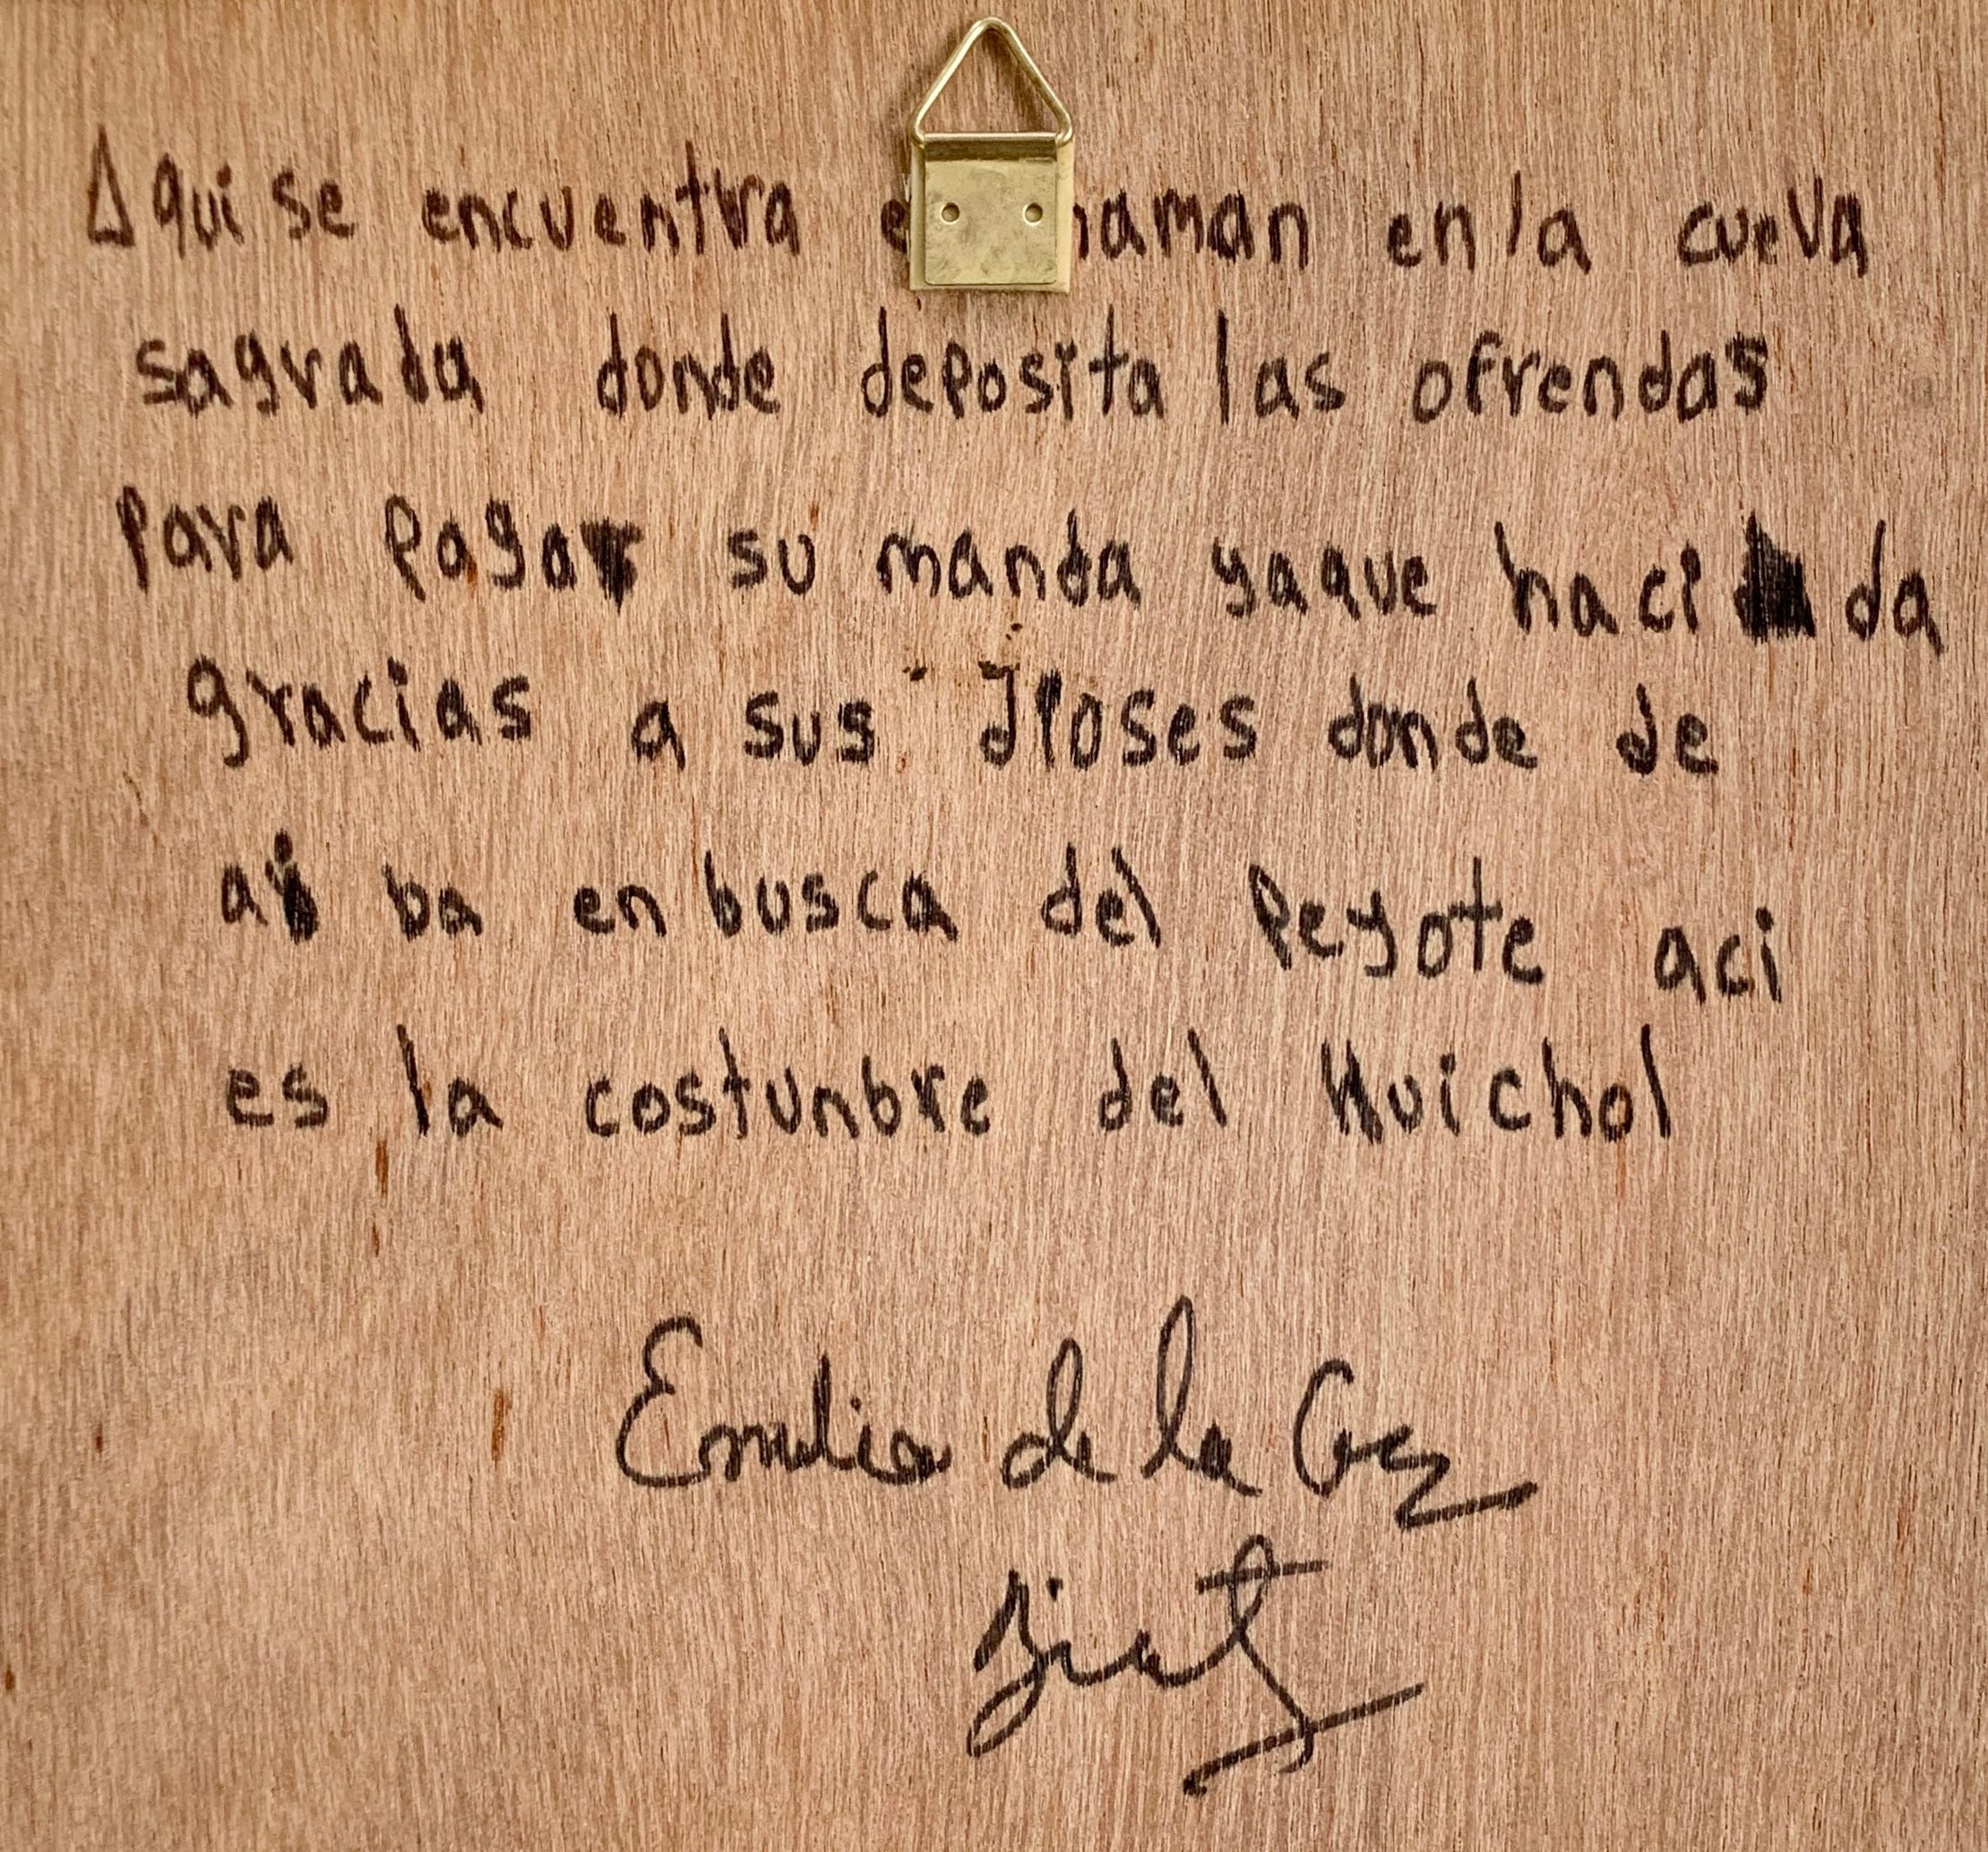 Aqui se encuentra e haman en la cueva
sagrada donde deposita las ofrendas
para pagar su manda yaque haci da
gracias a sus dioses donde de
ai ba en busca del peyote aci
es la costunbre del Huichol
Emilia de la